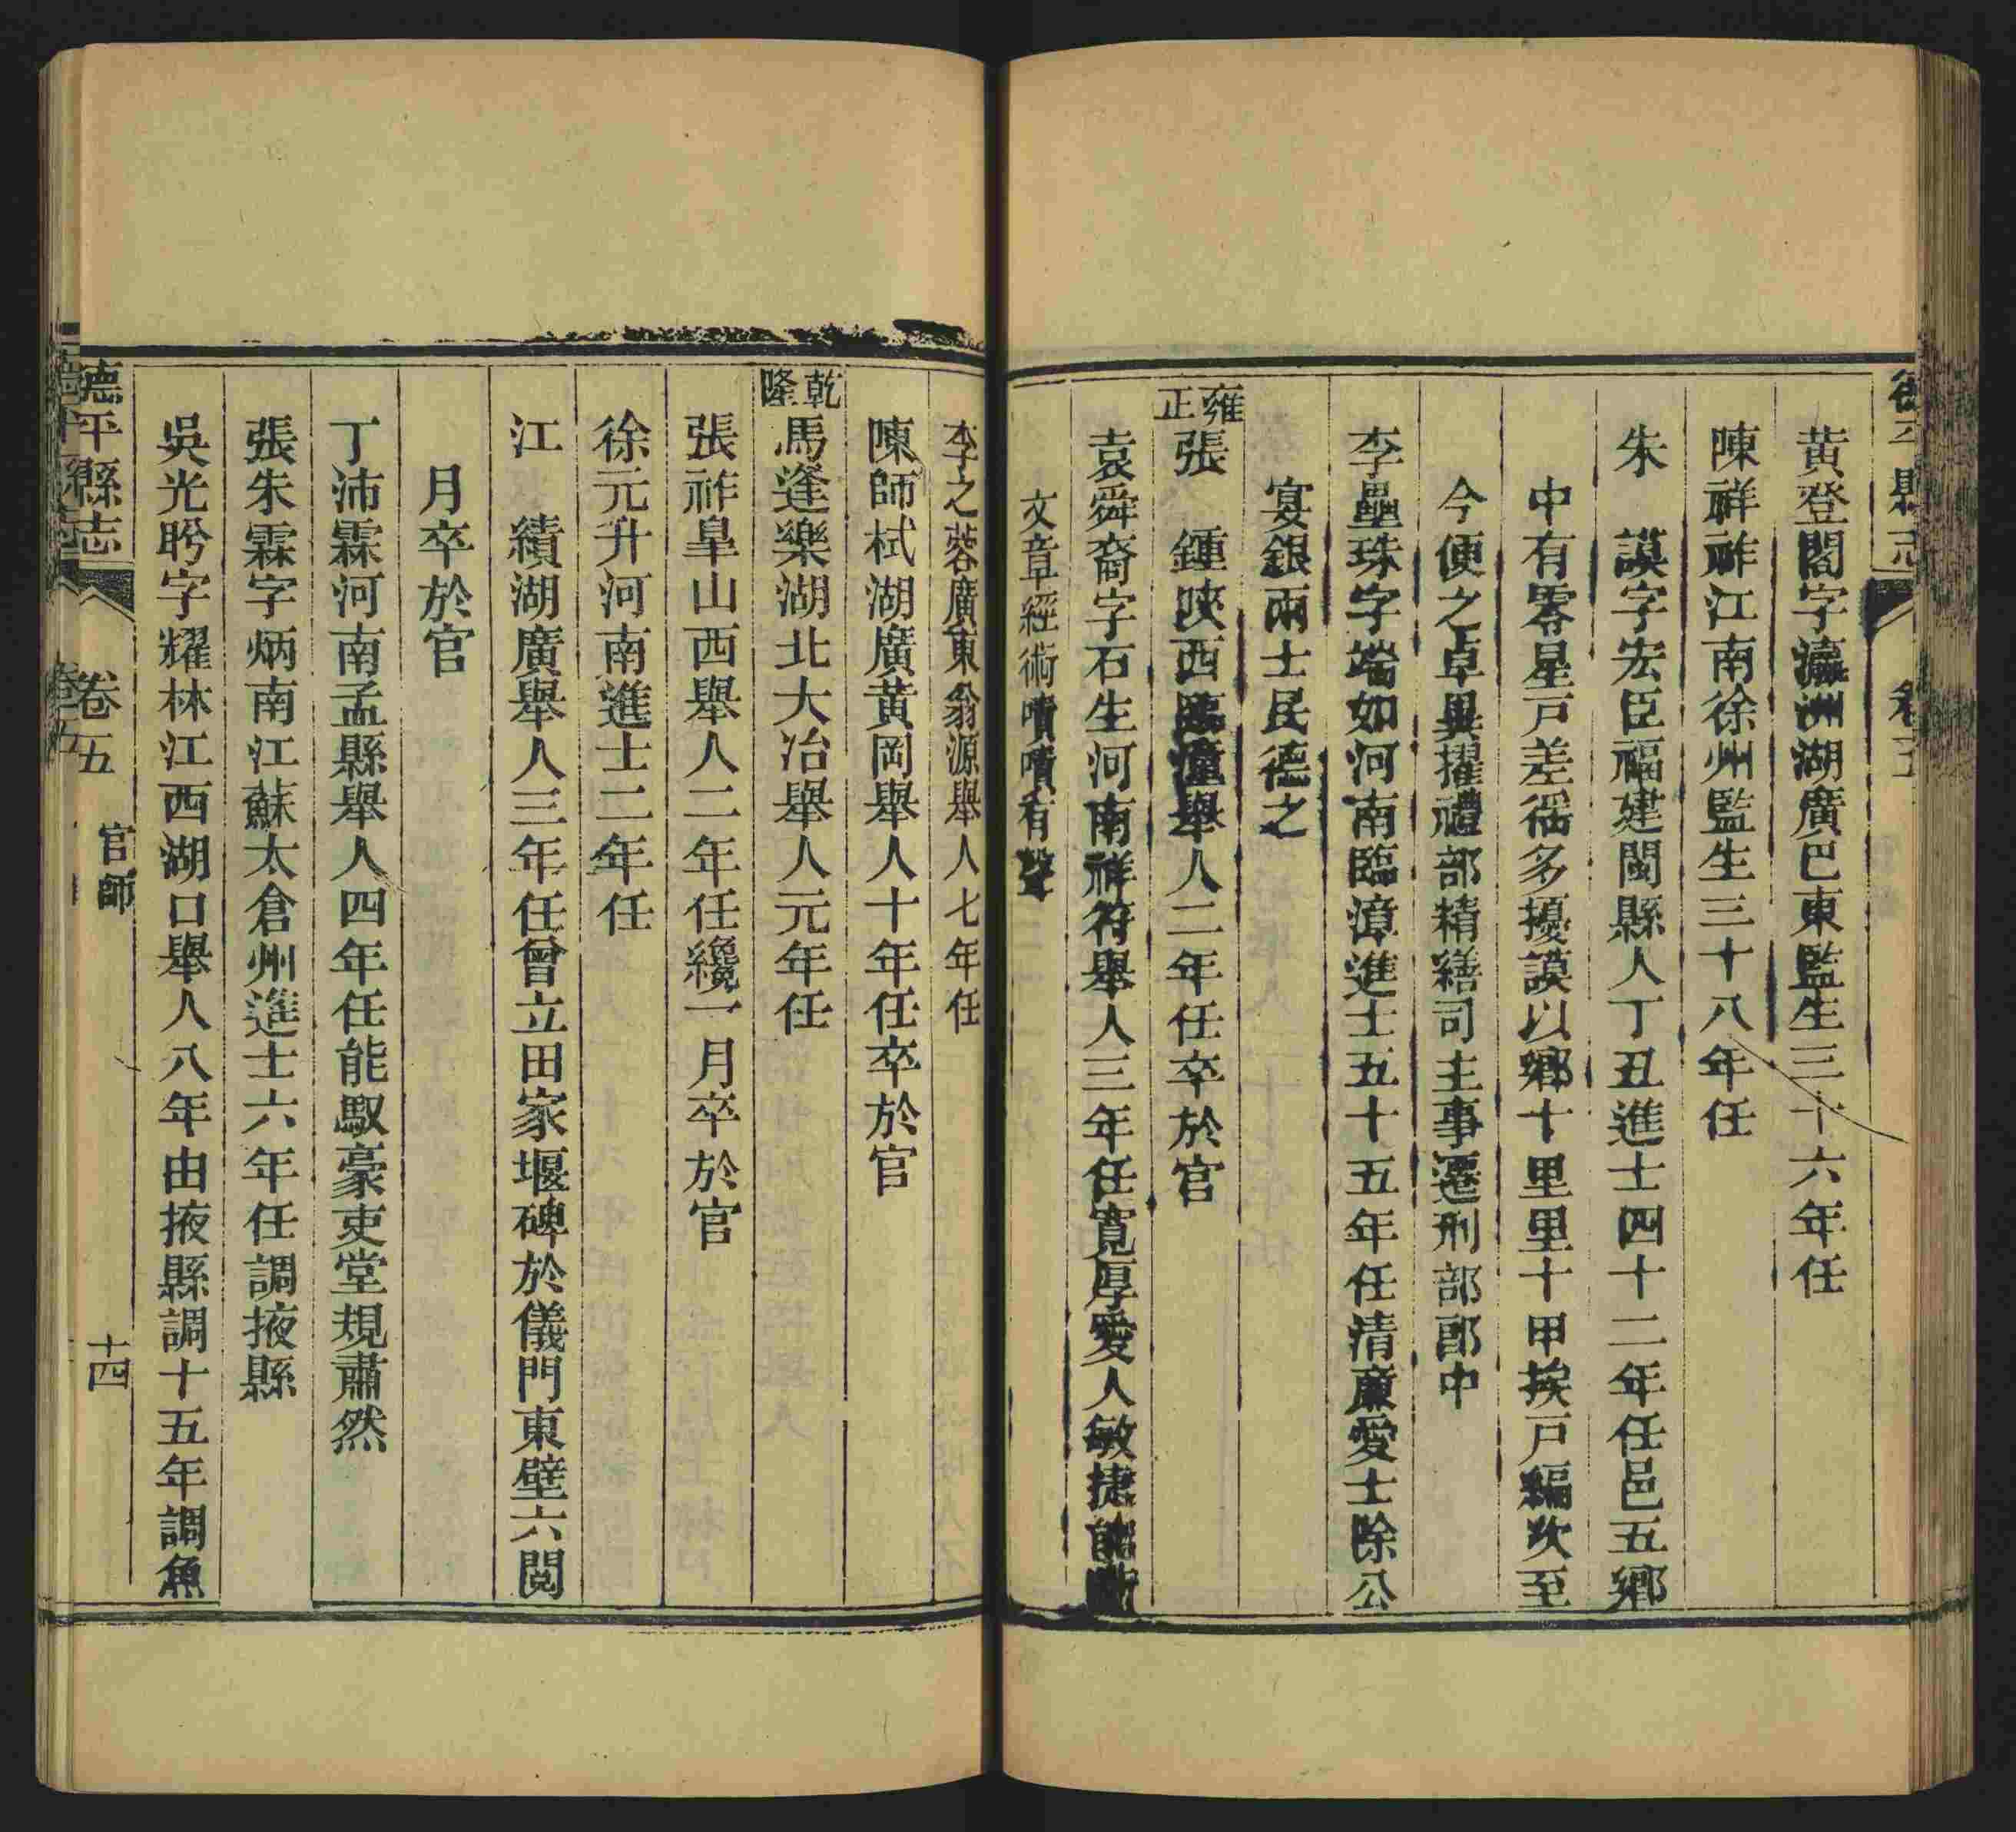 德平縣志 卷五
黃登閣字瀛洲湖廣巴東監生三十六年任
陳祥祚江南徐州監生三十八年任
朱 謨字宏臣福建閩縣人丁丑進士四十二年任邑五鄉
中有零星戸差徭多擾謨以鄉十里里十甲挨戸編次至
今便之卓異擢禮部精繕司主事遷刑部郎中
李壘珠字端如河南臨漳進士五十五年任清廉愛士除公
宴銀兩士民德之
雍正張 鍾陝西臨潼舉人二年任卒於官
袁舜裔字石生河南祥符舉人三年任寬厚愛人敏捷能斷
文章經術嘖嘖有聲
李之蓉廣東翁源舉人七年任
陳師栻湖廣黃岡舉人十年任卒於官
乾隆馬逢樂湖北大冶舉人元年任
張祚臯山西舉人二年任纔一月卒於官
徐元升河南進士二年任
江 績湖廣舉人三年任曾立田家堰碑於儀門東壁六閱
月卒於官
丁沛霖河南孟縣舉人四年任能馭豪吏堂規肅然
張朱霖字炳南江蘇太倉州進士六年任調掖縣
吳光昤字耀林江西湖口舉人八年由掖縣調十五年調魚
德平縣志 卷五 官師 十四